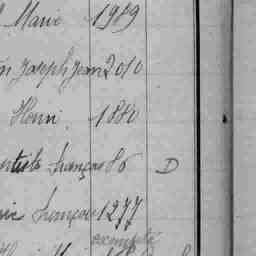 Marie 1989
Joseph Jean 2010
Henri 1880
François 86 D
François 1277
exempté